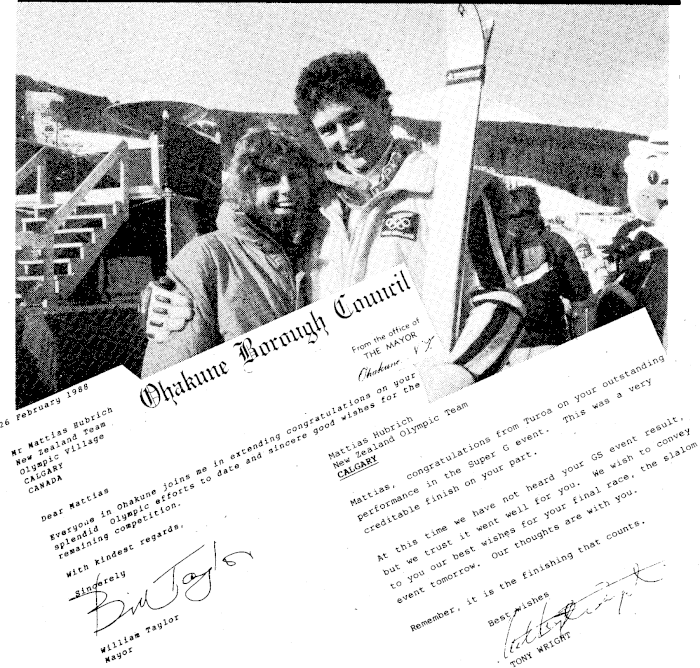 Ohakune Borough Council
From the office of
THE MAYOR
Ohakune N.Z.
26 February 1988
Mr Mattias Hubrich
New Zealand Team
Olympic Village
CALGARY
CANADA
Dear Mattias
Everyone in Ohakune joins me in extending congratulations on your
splendid Olympic efforts to date and sincere good wishes for the
remaining competition.
With kindest regards,
Sincerely
Bill Taylor
William Taylor
Mayor
Mattias Hubrich
New Zealand Olympic Team
CALGARY
Mattias, congratulations from Turoa on your outstanding
performance in the Super G event. This was a very
creditable finish on your part.
At this time we have not heard your GS event result,
but we trust it went well for you. We wish to convey
to you our best wishes for your final race, the slalom
event tomorrow. Our thoughts are with you.
Remember, it is the finishing that counts.
Best wishes
TONY WRIGHT